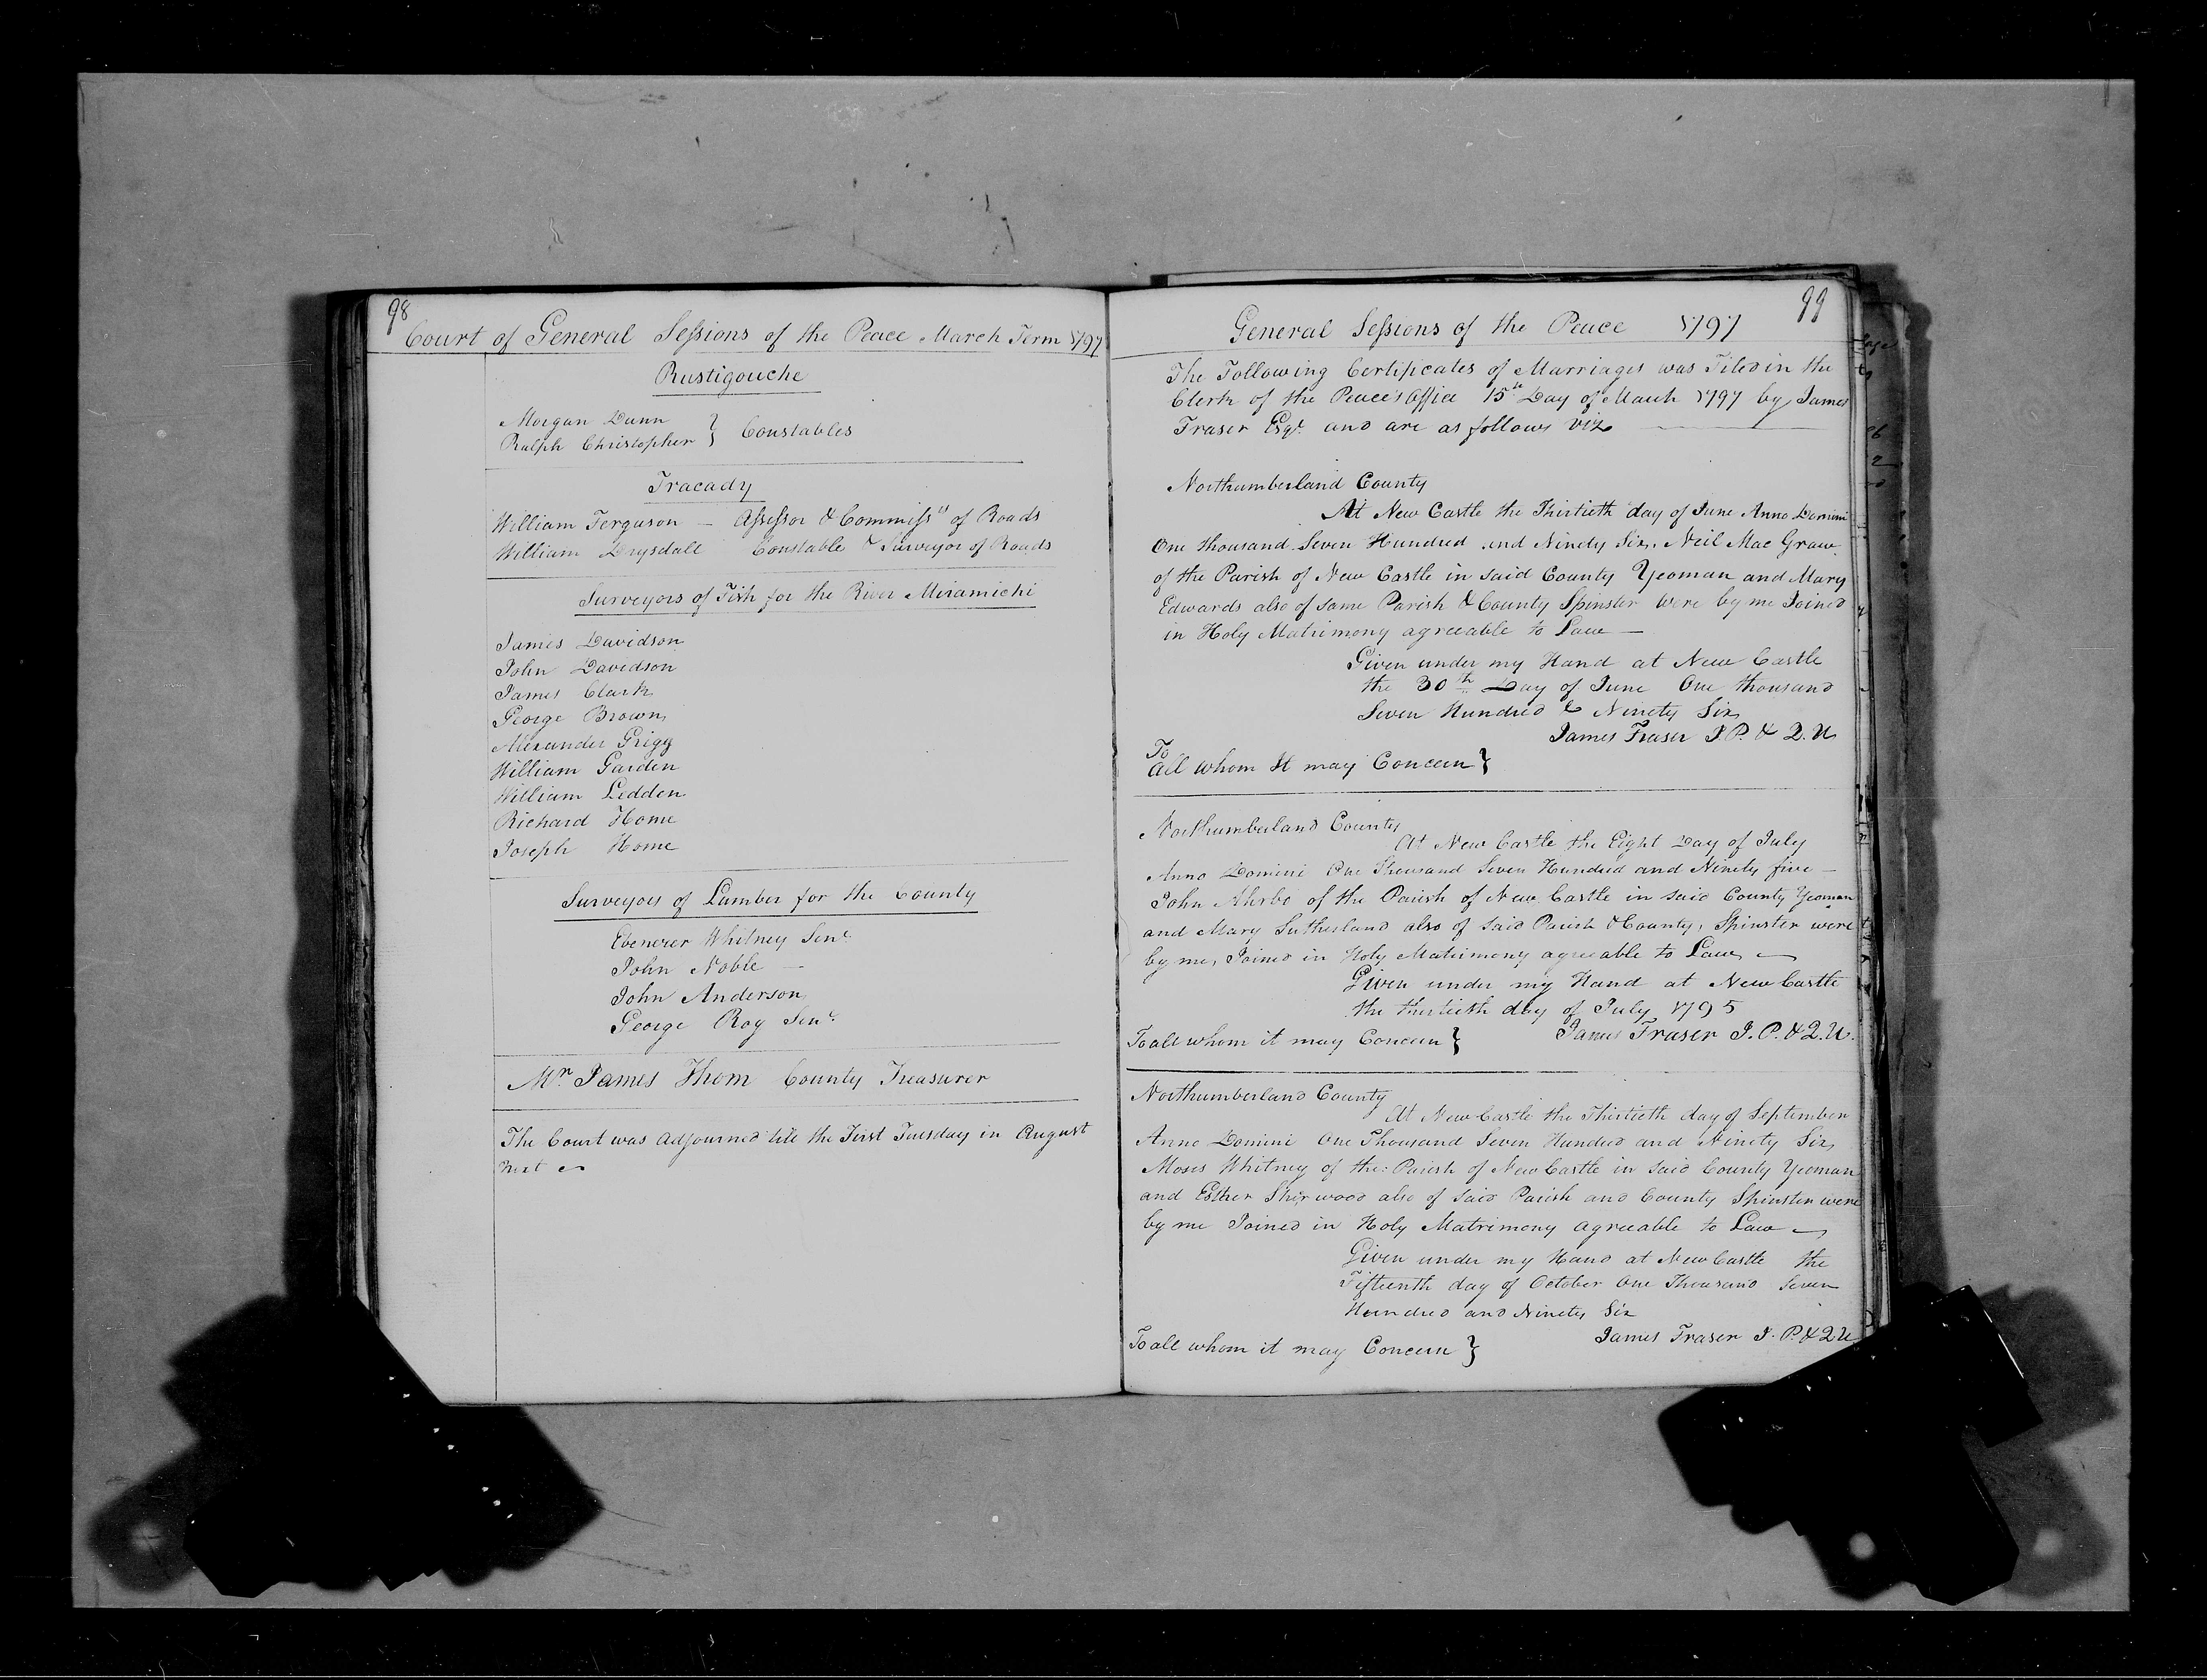 98
Court of General Sessions of the Peace March Term 1797
Rustigouche
Morgan Dunn
Ralph Christopher } Constables
Tracady
William Ferguson — Assessor & Commissrs of Roads
William Drysdale Constable & Surveyor of Roads
Surveyors of Fish for the River Miramichi
James Davidson
John Davidson
James Clark
George Brown
Alexander Grigg
William Garden
William Ledden
Richard Home
Joseph Home
Surveyors of Lumber for the County
Ebenezer Whitney Senr
John Noble —
John Anderson
George Roy Senr
Mr James Thom County Treasurer
The Court was adjourned till the First Tuesday in August
Next
99
General Sessions of the Peace 1797
The Following Certificates of Marriages was Filed in the
Clerk of the Peace's Office 15th Day of March 1797 by James
Fraser Esqr. and are as follows Viz
Northumberland County
At New Castle the Thirtieth day of June Anno Domini
One thousand Seven Hundred and Ninety Six, Neil Mac Graw
of the Parish of New Castle in said County Yeoman and Mary
Edwards also of same Parish & County Spinster were by me Joined
in Holy Matrimony agreeable to Law —
Given under my Hand at New Castle
the 30th Day of June One thousand
Seven Hundred & Ninety Six
James Fraser J. P. & Q. U
To
all whom It may Concern }
Northumberland County
At New Castle the Eight Day of July
Anno Domini One Thousand Seven Hundred and Ninety five —
John Ahrbo of the Parish of New Castle in said County Yeoman
and Mary Sutherland also of said Parish & County, Spinster were
by me, Joined in Holy Matrimony agreeable to Law
Given under my Hand at New Castle
the thirtieth day of July 1795
To all whom it may Concern } James Fraser J. P. & Q. U.
Northumberland County
At New Castle the Thirtieth day of September
Anno Domini One Thousand Seven Hundred and Ninety Six
Moses Whitney of the Parish of New Castle in said County Yeoman
and Esther Sherwood also of said Parish and County Spinster were
by me Joined in Holy Matrimony agreeable to Law
Given under my Hand at New Castle the
Fifteenth day of October One Thousand Seven
Hundred and Ninety Six
James Fraser J. P. & Q U
To all whom it may Concern }